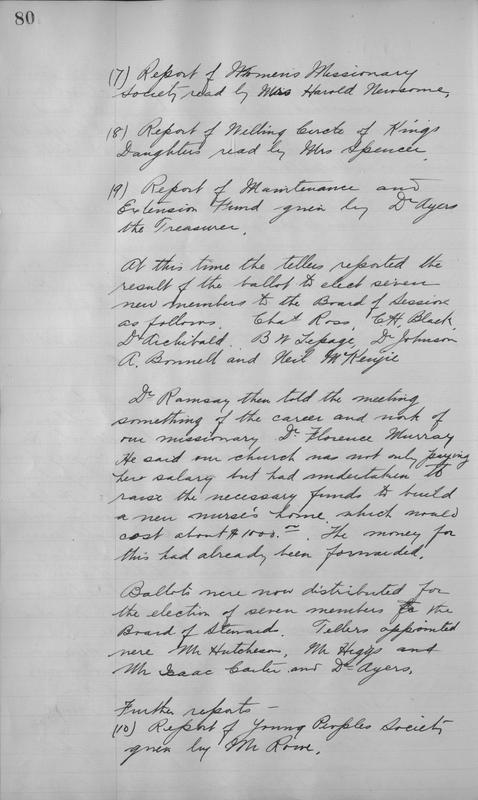 80
(7) Report of Womens Missionary
Society read by Mrs Harold Newsome,
(8) Report of Willing Circle of Kings
Daughters read by Mrs Spencer.
(9) Report of Maintenance and
Extension Fund given by Dr Ayers
the Treasurer.
At this time the tellers reported the
result of the ballot to elect seven
new members to the Board of Session
as follows. Chas Ross, C.H. Black,
Dr Archibald. B W Lepage, Dr Johnson
A. Bonnell and Neil McKenzie
Dr Ramsay then told the meeting
something of the career and work of
our missionary Dr Florence Murray
He said our church was not only paying
her salary but had undertaken to
raise the necessary funds to build
a new nurse's home which would
cost about $1000.00. The money for
this had already been forwarded.
Ballots were now distributed for
the election of seven members to the
Board of Stewards. Tellers appointed
were Mr Hutcheson, Mr Higgs and
Mr Isaac Carter and Dr Ayers.
Further reports -
(10) Report of Young Peoples Society
given by Mr Rowe.